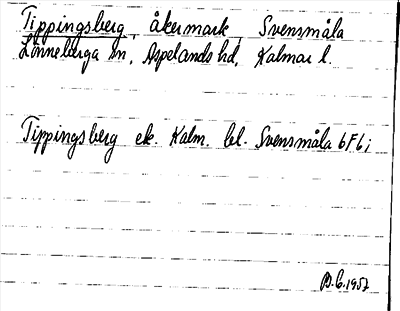 Tippingsberg, åkermark, Svensmåla
Lönneberga sn, Aspelands hd, Kalmar l.
Tippingsberg ek. Kalm. bl. Svensmåla 6F6i
1957